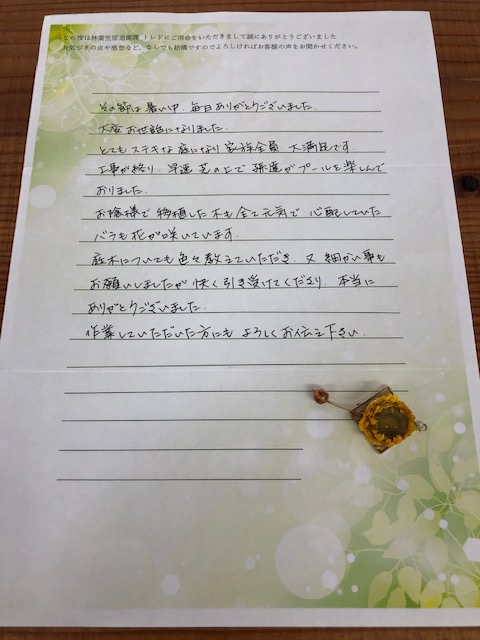 この度は林業笠原造園㈱ トレドにご用命をいただきまして誠にありがとうございました
お気づきの点や感想など、なんでも結構ですのでよろしければお客様の声をお聞かせください。
その節は暑い中、毎日ありがとうございました。
大変お世話になりました。
とてもステキな庭になり家族全員 大満足です。
工事が終り、早速 芝の上で 孫達がプールを楽しんで
おりました。
お陰様で 移植した木も全て元気で 心配していた
バラも花が咲いています。
庭木についても色々教えていただき、又 細かい事も
お願いしましたが快く引き受けてくださり、本当に
ありがとうございました。
作業していただいた方にも よろしくお伝え下さい。